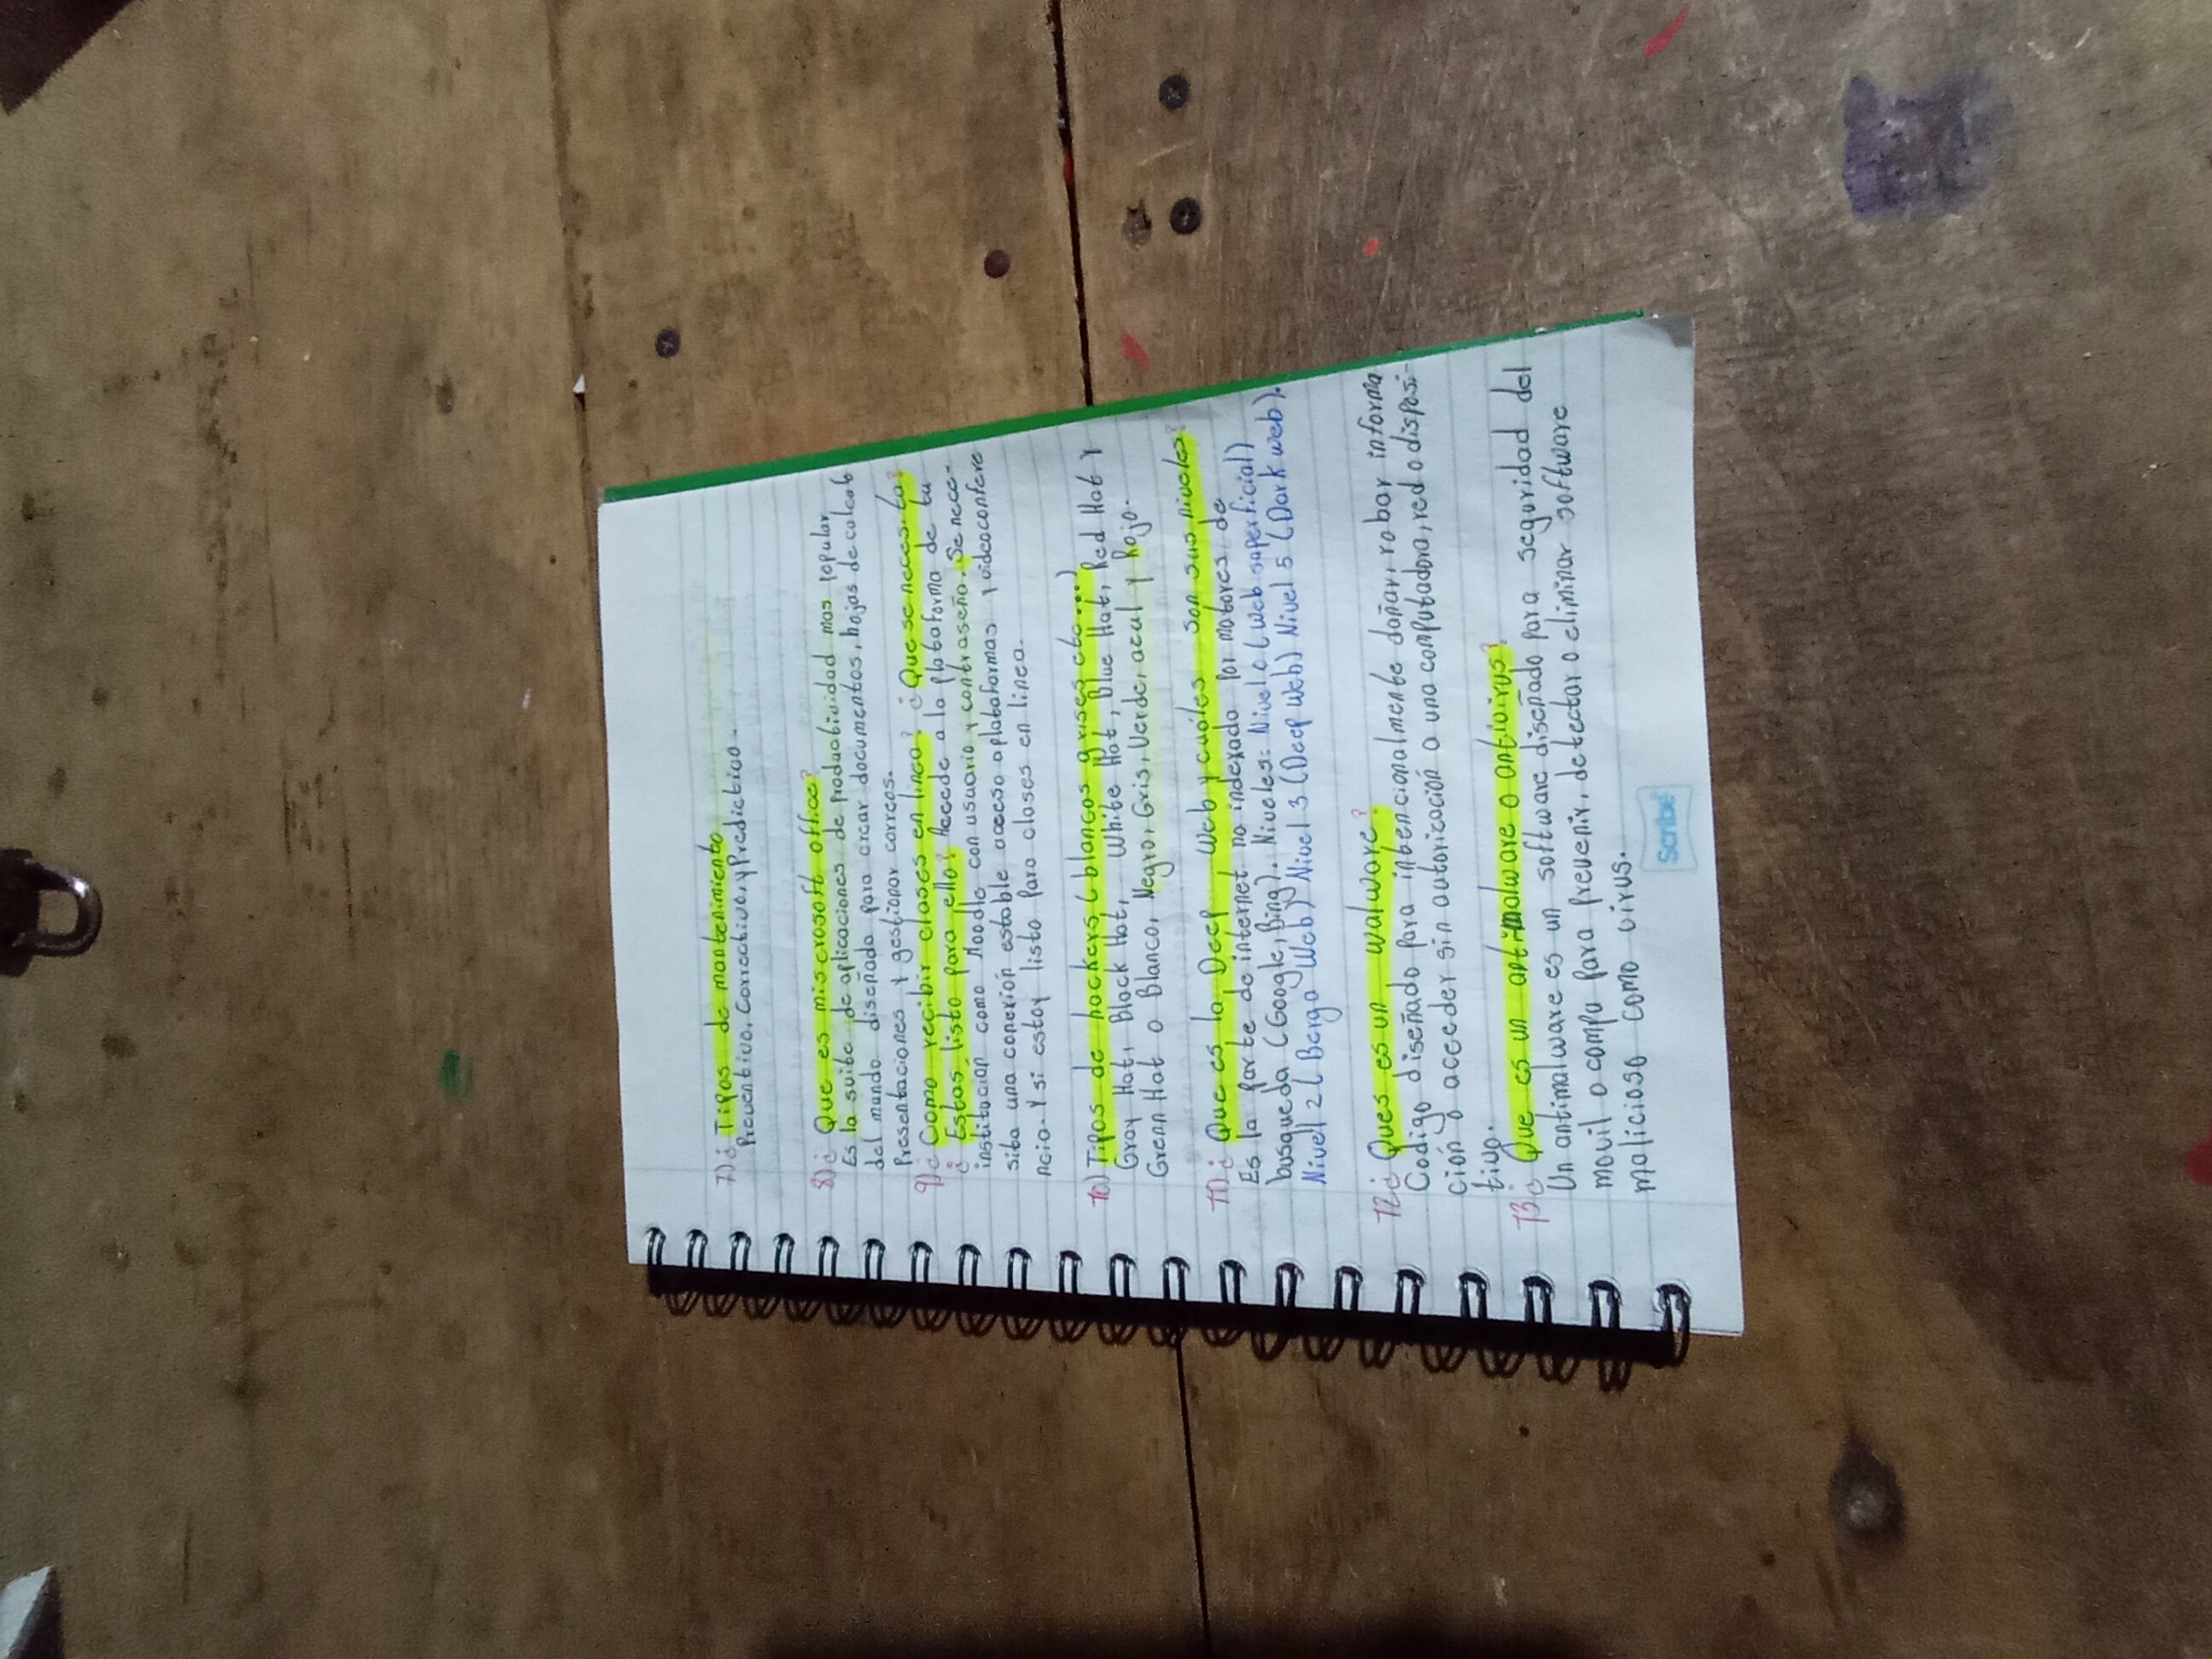 7)¿ Tipos de mantenimiento
Preventivo, Correctivo, y Predictivo.
8)¿ Que es miscrosoft office?
Es la suite de aplicaciones de productividad mas popular
del mundo diseñado para crear documentos, hojas de calculo
Presentaciones y gestionar correos.
9)¿ Como recibir clases en linea? ¿ Que se necesita?
¿ Estas listo para ello? Accede a la plataforma de tu
institución como Moodle con usuario y contraseña. Se nece-
sita una conexión estable acceso a plataformas y videoconfere
ncia. Y si estoy listo para clases en linea.
10) Tipos de hackers ( blancos grises etc...)
Gray Hat, Black Hat, White Hat, Blue Hat, Red Hat y
Grenn Hat o Blanco, Negro, Gris, Verde, azul y Rojo.
11)¿ Que es la Deep Web y cuáles son sus niveles?
Es la parte de internet no indexado por motores de
busqueda (Google, Bing). Niveles: Nivel c (Web superficial)
Nivel 2 ( Bergo Web) Nivel 3 (Deep Web) Nivel 5 (Dark web).
12¿ Ques es un walware?
Codigo diseñado para intencionalmente dañar, robar informa
ción o acceder sin autorización a una computadora, red o disposi-
tivo.
13¿ Que es un antimalware o antivirus?
Un antimalware es un software diseñado para seguridad del
movil o compu para prevenir, detectar o eliminar software
malicioso como virus.
Scribe